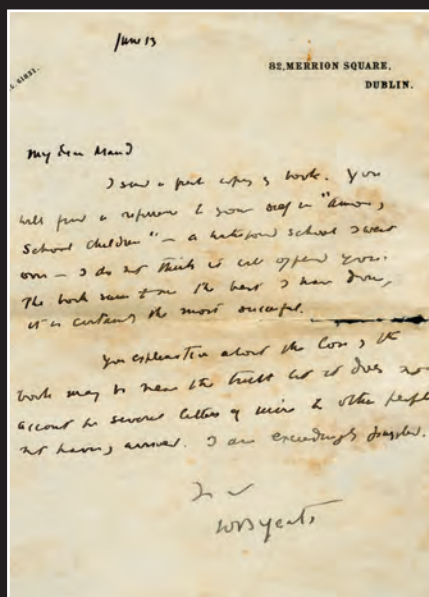 June 13
82, MERRION SQUARE,
DUBLIN.
My dear Maud
I send a copy of book. You
will find a reference to your self in "Among
School Children" – a Waterford school I went
over – I do not think it will offend you.
The book seems to me the best I have done,
it is certainly the most successful.
Your explanation about the loss of the
book may be near the truth but it does not
account for several letters of mine to other people
not having arrived. I am exceedingly puzzled.
WB Yeats